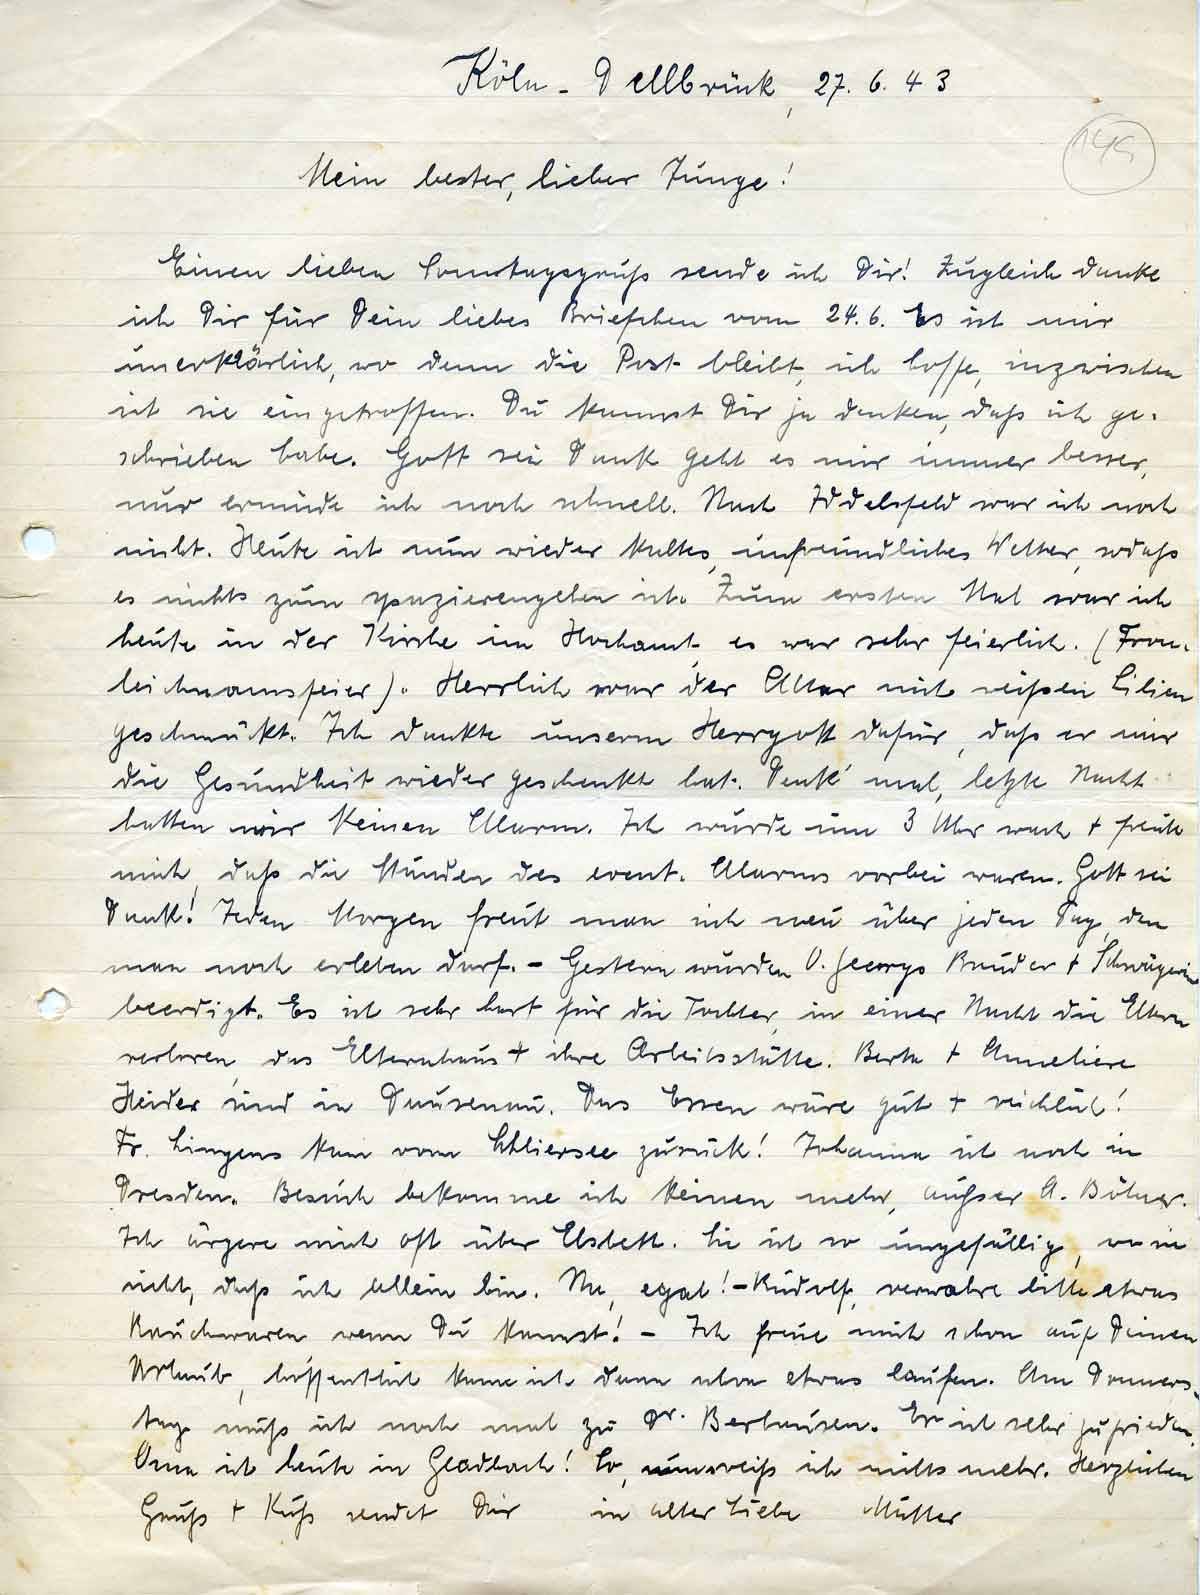 Köln - Dellbrück, 27. 6. 43
145
Mein bester, lieber Junge!
Einen lieben Sonntagsgruß sende ich Dir! Zugleich danke
ich Dir für Dein liebes Briefchen vom 24.6. Es ist mir
unerklärlich, wo denn die Post bleibt, ich hoffe, inzwischen
ist sie eingetroffen. Du kannst Dir ja denken, daß ich ge-
schrieben habe. Gott sei Dank geht es mir immer besser,
nur ermüde ich noch schnell. Nach Iddelsfeld war ich noch
nicht. Heute ist nun wieder kaltes, unfreundliches Wetter, sodaß
es nichts zum spazierengehen ist. Zum ersten Mal war ich
heute in der Kirche im Hochamt, es war sehr feierlich. (Fron-
leichnamsfeier). Herrlich war der Altar mit weißen Lilien
geschmückt. Ich dankte unserm Herrgott dafür, daß er mir
die Gesundheit wieder geschenkt hat. Denk' mal, letzte Nacht
hatten wir keinen Alarm. Ich wurde um 3 Uhr wach + freute
mich, daß die Stunden des event. Alarms vorbei waren. Gott sei
Dank! Jeden Morgen freut man sich neu über jeden Tag, den
man noch erleben darf. - Gestern wurden O. Georgs Bruder + Schwägerin
beerdigt. Es ist sehr hart für die Tochter, in einer Nacht die Eltern
verloren, das Elternhaus + ihre Arbeitsstätte. Berta + Anneliese
Heider sind in Dausenau. Das Essen wäre gut + reichlich!
Fr. Lingens kam vom Schliersee zurück! Johanna ist noch in
Dresden. Besuch bekomme ich keinen mehr, außer A. Böhner.
Ich ärgere mich oft über Elsbett. Sie ist so ungefällig, wo sie
sieht, daß ich allein bin. Na, egal! - Rudolf, verwahre bitte etwas
Rauchwaren wenn Du kannst! - Ich freue mich schon auf Deinen
Urlaub, hoffentlich kann ich dann schon etwas laufen. Am Donners-
tag muß ich noch mal zu Dr. Berhausen. Er ist sehr zufrieden.
Oma ist heute in Gladbach! So, nun weiß ich nichts mehr. Herzlichen
Gruß + Kuß sendet Dir in alter Liebe Mutter